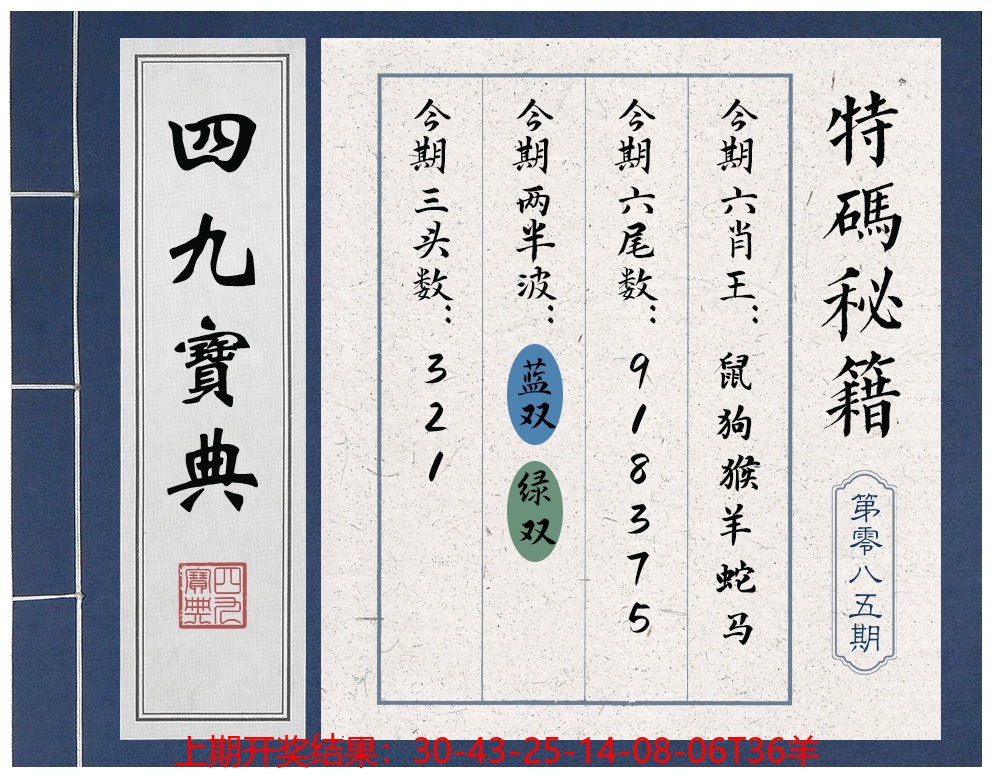 特碼秘籍
第零八五期
今期六肖王：鼠狗猴羊蛇马
今期六尾数：918375
今期两半波：蓝双 绿双
今期三头数：321
四九寶典
四九寶典
上期开奖结果：30-43-25-14-08-06T36羊